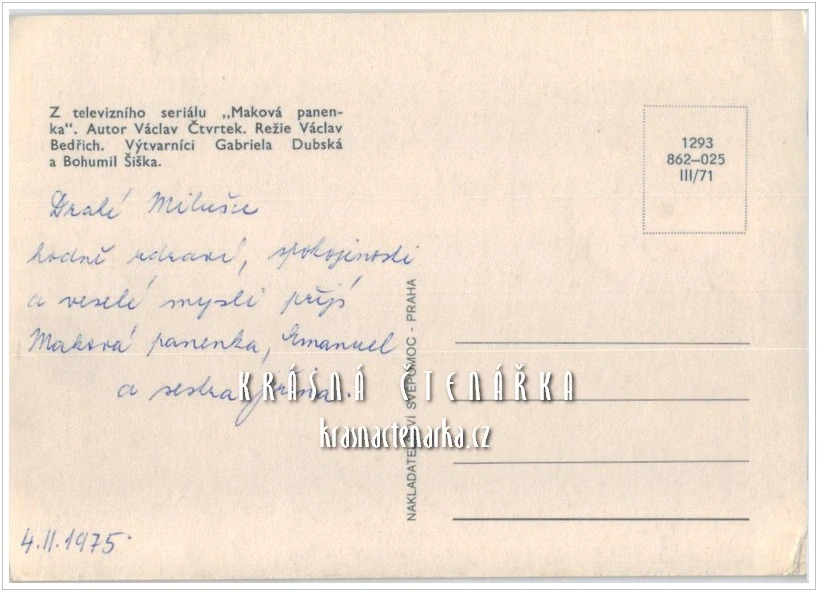 Z televizního seriálu „Maková panen-
ka“. Autor Václav Čtvrtek. Režie Václav
Bedřich. Výtvarníci Gabriela Dubská
a Bohumil Šiška.
1293
862—025
III/71
Drahé Milušce
hodně zdraví, spokojenosti
a veselé mysli přejí
Maková panenka, Emanuel
a sestra
KRÁSNÁ ČTENÁŘKA
krasnactenarka.cz
NAKLADATELSTVÍ SVÉPOMOC - PRAHA
4.II.1975.